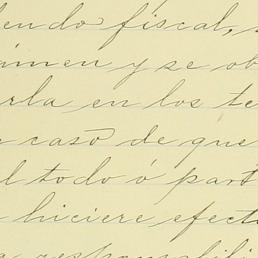 endo fiscal,
imen y se ob
arla en los te
caso de que
l todo ó part
hiciere efect
responsabili